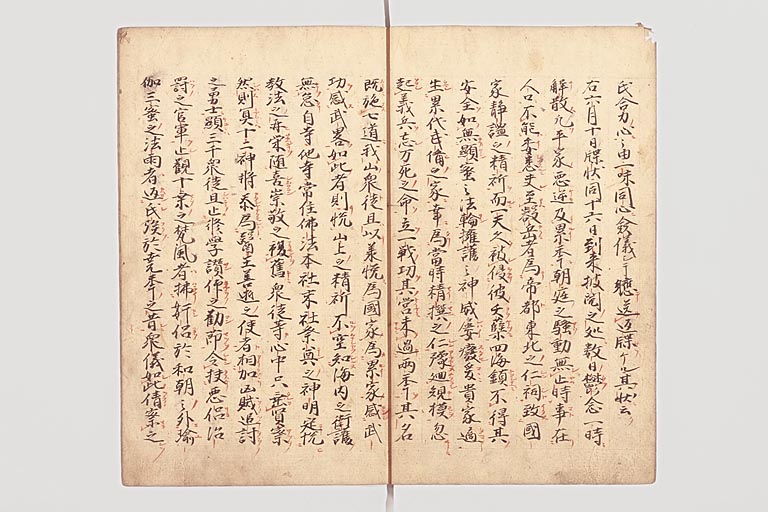 氏合力心之由一味同心僉儀シテ聴送返牒ケリ其状云
右六月十日牒状同十六日到来披閲之処数日鬱念一時
解散凡平家悪逆及累年朝庭之騒動無止時事在
人口不能委悉夫至叡岳者為帝都東北之仁祠致國
家静謐之精祈而一天久被侵彼夭孽四海鎮不得其
安全如無顕蜜之法輪擁護之神威屡癈爰貴家適
生累代武備之家幸為當時精撰之仁豫廻規授忽
起義兵忘万死之命立一戦功其営未過兩年其名
既施七道我山衆徒且以美悦為國家為累家感武
功感武畧如此者則悦山上之精祈不空知海内之衛護
無怠自寺他寺常住佛法本社末社祭奠之神明定悦
教法之再栄随喜崇敬之複舊衆徒等心中只垂賢察
然則冥十二神将忝為醫王善逝之使者相加凶賊追討
之勇士顕三千衆徒且止修学讃仰之勤節令扶悪侶治
罸之官軍止觀十乗之梵風者拂奸侶於和朝之外瑜
伽三蜜之法雨者返民族於尭年之昔衆儀如此倩案之